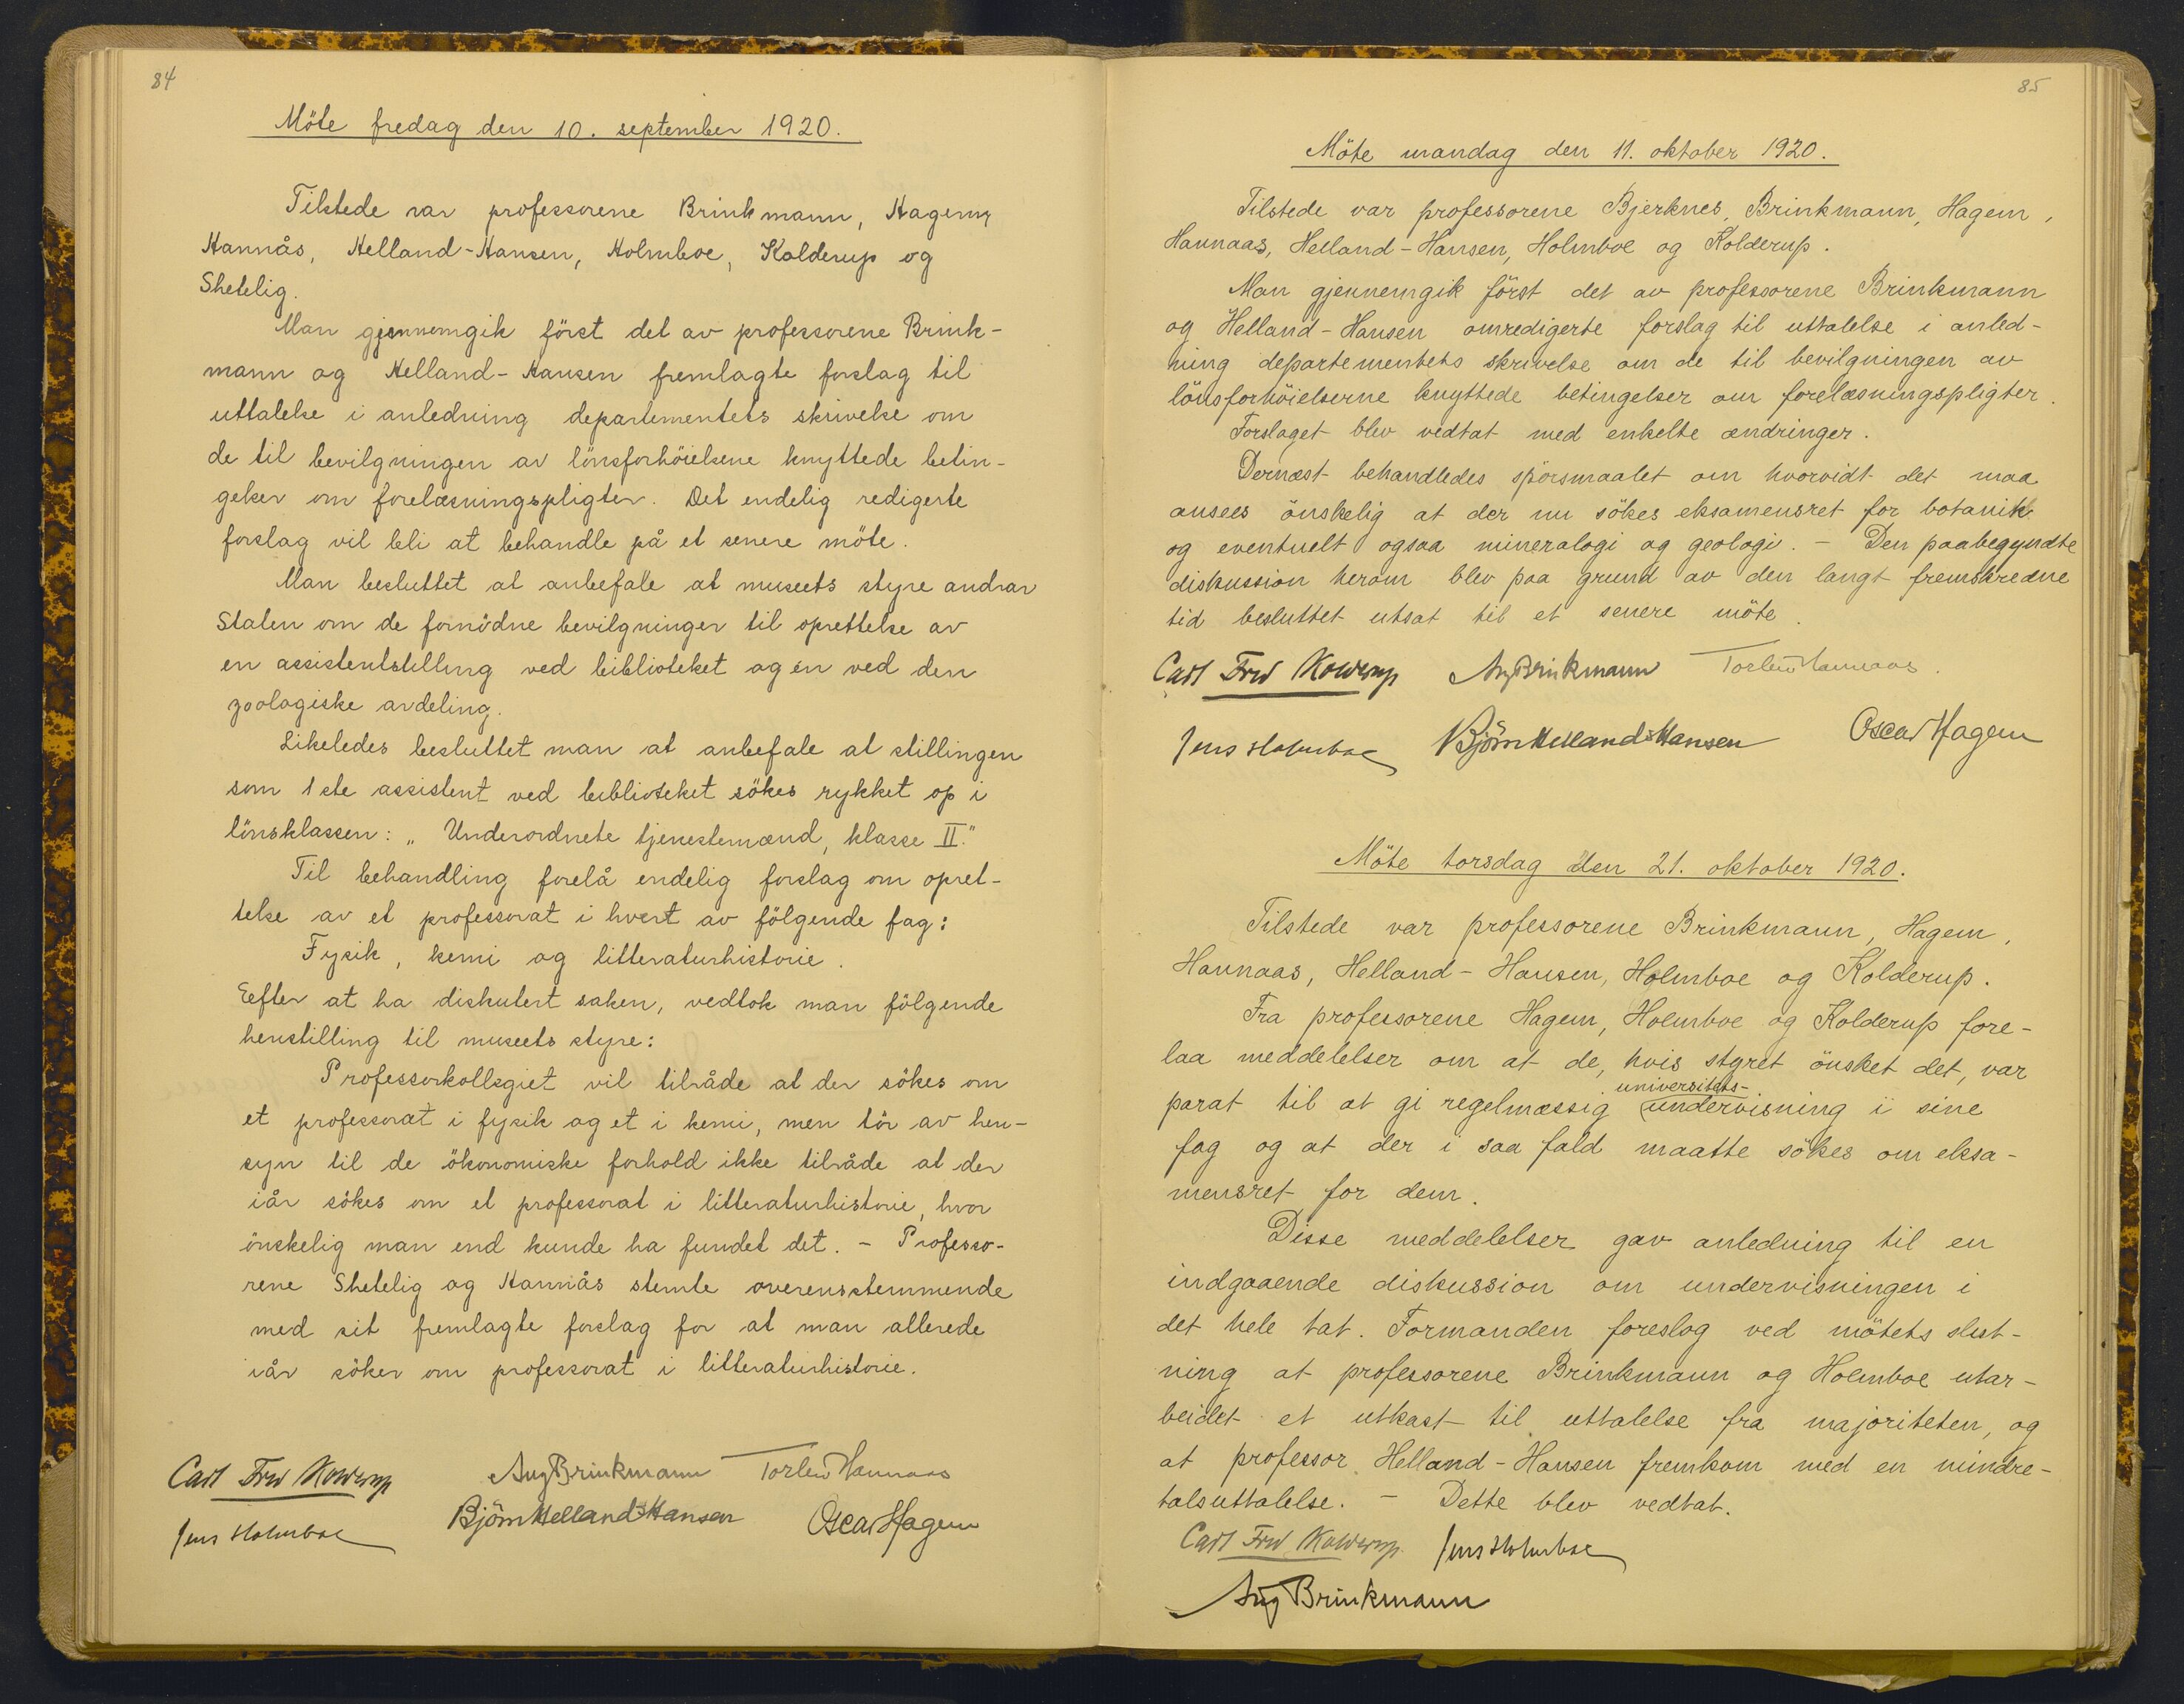 84
Möte fredag den 10. september 1920.
Tilstede var professorene Brinkmann, Hagem,
Hannås, Helland-Hansen, Holmboe, Kolderup og
Shetelig.
Man gjennemgik först det av professorene Brink-
mann og Helland-Hansen fremlagte forslag til
uttalelse i anledning departementets skrivelse om
de til bevilgningen av lönsforhöielsene knyttede betin-
gelser om forelæsningspligter. Det endelig redigerte
forslag vil bli at behandle på et senere möte.
Man besluttet at anbefale at museets styre andrar
Staten om de fornödne bevilgninger til oprettelse av
en assistentstilling ved biblioteket og én ved den
zoologiske avdeling.
Likeledes besluttet man at anbefale at stillingen
som 1ste assistent ved biblioteket sökes rykket op i
lönsklassen: „Underordnete tjenestemænd, klasse II."
Til behandling forelå endelig forslag om opret-
telse av et professorat i hvert av fölgende fag:
Fysik, kemi og litteraturhistorie.
Eefter at ha diskutert saken, vedtok man fölgende
henstilling til museets styre:
Professorkollegiet vil tilråde at der sökes om
et professorat i fysik og et i kemi, men tör av hen-
syn til de ökonomiske forhold ikke tilråde at der
iår sökes om et professorat i litteraturhistorie, hvor
önskelig man end kunde ha fundet det. - Professo-
rene Shetelig og Hannås stemte overensstemmende
med sit fremlagte forslag for at man allerede
iår söker om professorat i litteraturhistorie.
Carl Fred Kolderup Aug Brinkmann Torleiv Hannaas
Jens Holmboe Björn Helland-Hansen Oscar Hagem
85
Möte mandag den 11. oktober 1920.
Tilstede var professorene Bjerknes, Brinkmann, Hagem,
Hannaas, Helland-Hansen, Holmboe og Kolderup.
Man gjennemgik först det av professorene Brinkmann
og Helland-Hansen omredigerte forslag til uttalelse i anled-
ning departementets skrivelse om de til bevilgningen av
lönsforhöielserne knyttede betingelser om forelæsningspligter.
Forslaget blev vedtat med enkelte ændringer.
Dernæst behandledes spörsmaalet om hvorvidt det maa
ansees önskelig at der nu sökes eksamensret for botanik
og eventuelt ogsaa mineralogi og geologi. - Den paabegyndte
diskussion herom blev paa grund av den langt fremskredne
tid besluttet utsat til et senere möte.
Carl Fred Kolderup Aug Brinkmann Torleiv Hannaas.
Jens Holmboe Björn Helland-Hansen Oscar Hagem
Möte torsdag den 21. oktober 1920.
Tilstede var professorene Brinkmann, Hagem,
Hannaas, Helland-Hansen, Holmboe og Kolderup.
Fra professorene Hagem, Holmboe og Kolderup fore-
laa meddelelser om at de, hvis styret önsket det, var
universitets-
parat til at gi regelmæssig undervisning i sine
fag og at der i saa fald maatte sökes om eksa-
mensret for dem.
Disse meddelelser gav anledning til en
indgaaende diskussion om undervisningen i
det hele tat. Formanden foreslog ved mötets slut-
ning at professorene Brinkmann og Holmboe utar-
beidet et utkast til uttalelse fra majoriteten, og
at professor Helland-Hansen fremkom med en mindre-
talsuttalelse. - Dette blev vedtat.
Carl Fred Kolderup. Jens Holmboe
Aug Brinkmann